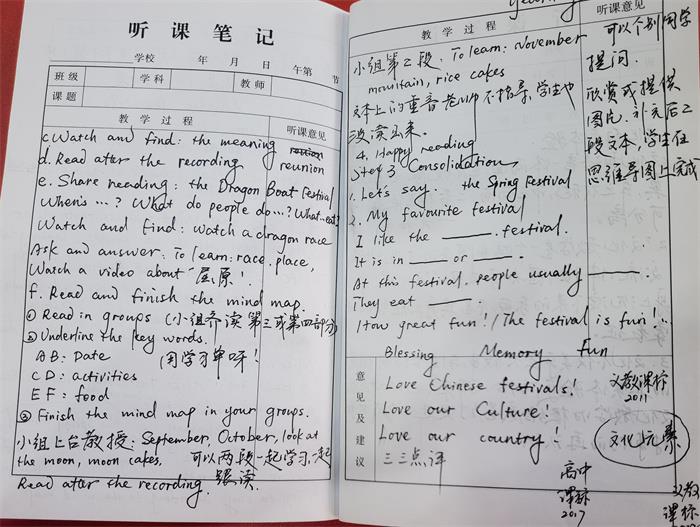 听课笔记
学校 年 月 日 午第 节
班级 学科 教师
课题
教学过程 听课意见
c. Watch and find: the meaning
d. Read after the recording. reunion
e. Share reading: the Dragon Boat Festival
When's...? What do people do...? What...eat?
Watch and find: watch a dragon race
Ask and answer: To learn: race, place,
Watch a video about "屈原".
f. Read and finish the mind map.
① Read in groups (小组齐读第三或第四部分)
② Underline the key words.
AB: Date 用学习单呀!
CD: activities
EF: food
③ Finish the mind map in your groups.
小组上台教授: September, October, look at
the moon, moon cakes. 可以两段一起学习一起
Read after the recording. 跟读.
教学过程 听课意见
小组第2段: To learn: November
mountain, rice cakes
文本上的重音老师不指导,学生也
没读出来.
4. Happy reading
Step 3 Consolidation
1. Let's say. the Spring Festival
2. My favourite festival
I like the ____ festival.
It is in ____ or ____.
At this festival, people usually ____.
They eat ____.
How great fun! / The festival is fun!
Blessing Memory Fun
可以个别同学
提问.
欣赏或提供
图片.补充后2
段文本,学生在
思维导图上完成
意见及建议
Love Chinese festivals!
Love our Culture!
Love our country!
三三点评
义教课标
2011
文化元素
高中
课标
2017
义教
课标